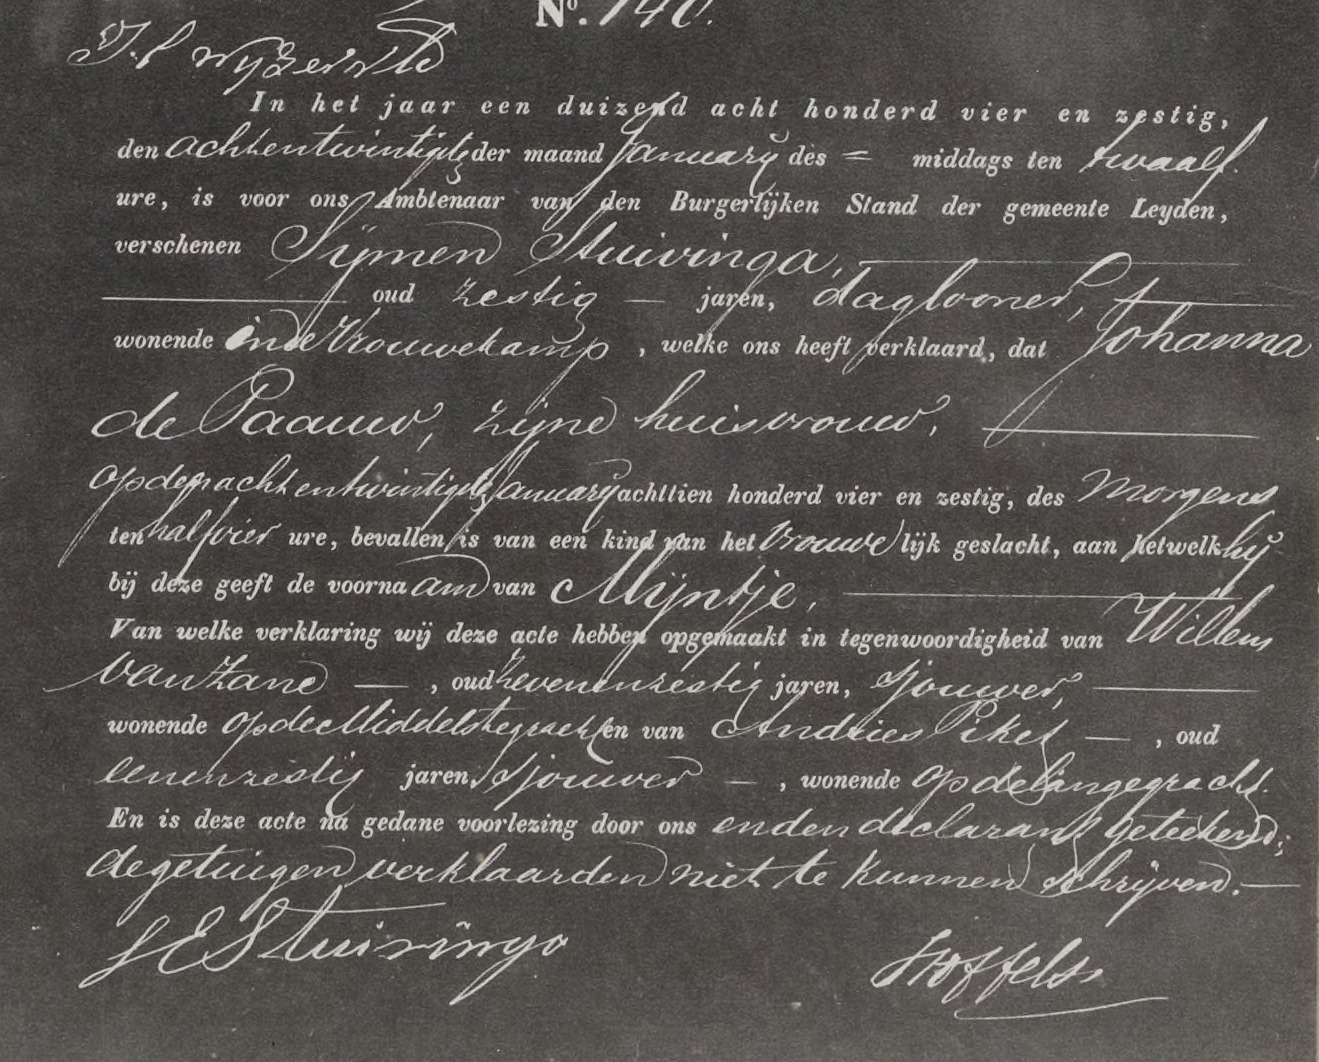 No. 140.
In het jaar een duizend acht honderd vier en zestig,
den achtentwintigste der maand January des = middags ten twaalf
ure, is voor ons Ambtenaar van den Burgerlijken Stand der gemeente Leyden,
verschenen Sijmen Stuivinga,
oud zestig — jaren, daglooner,
wonende in de Vrouwekamp, welke ons heeft verklaard, dat Johanna
de Paauw, zijne huisvrouw,
op den achtentwintigste January achttien honderd vier en zestig, des morgens
ten half vier ure, bevallen is van een kind van het vrouwelijk geslacht, aan hetwelk hij
bij deze geeft de voornaam van Mijntje,
Van welke verklaring wij deze acte hebben opgemaakt in tegenwoordigheid van Willem
van Zane —, oud zevenenzestig jaren, sjouwer,
wonende op de Middelstegracht en van Andries Piket —, oud
eenenzestig jaren, sjouwer —, wonende op de Langegracht.
En is deze acte na gedane voorlezing door ons en den declarant geteekend;
de getuigen verklaarden niet te kunnen schrijven. —
S E Stuivinga
Stoffels